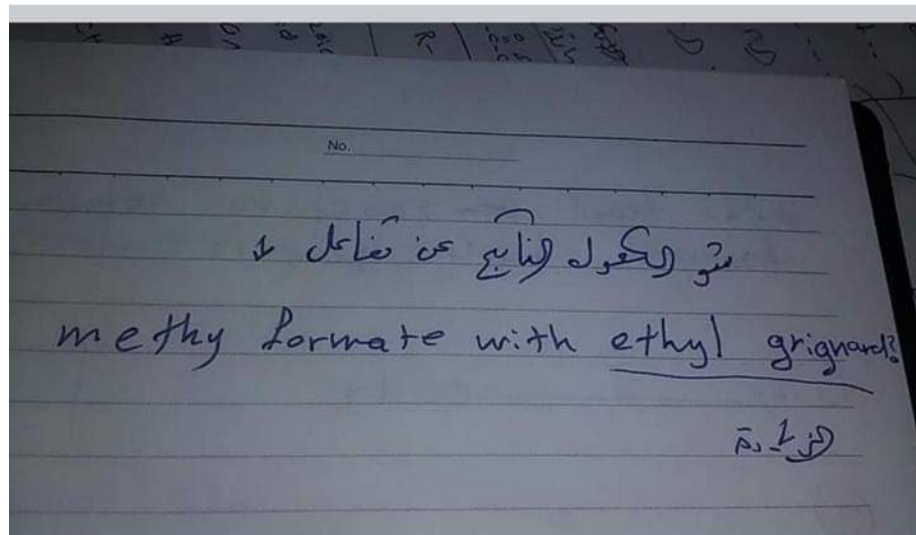 No.
شو الكحول الناتج عن تفاعل
methy formate with ethyl grignard?